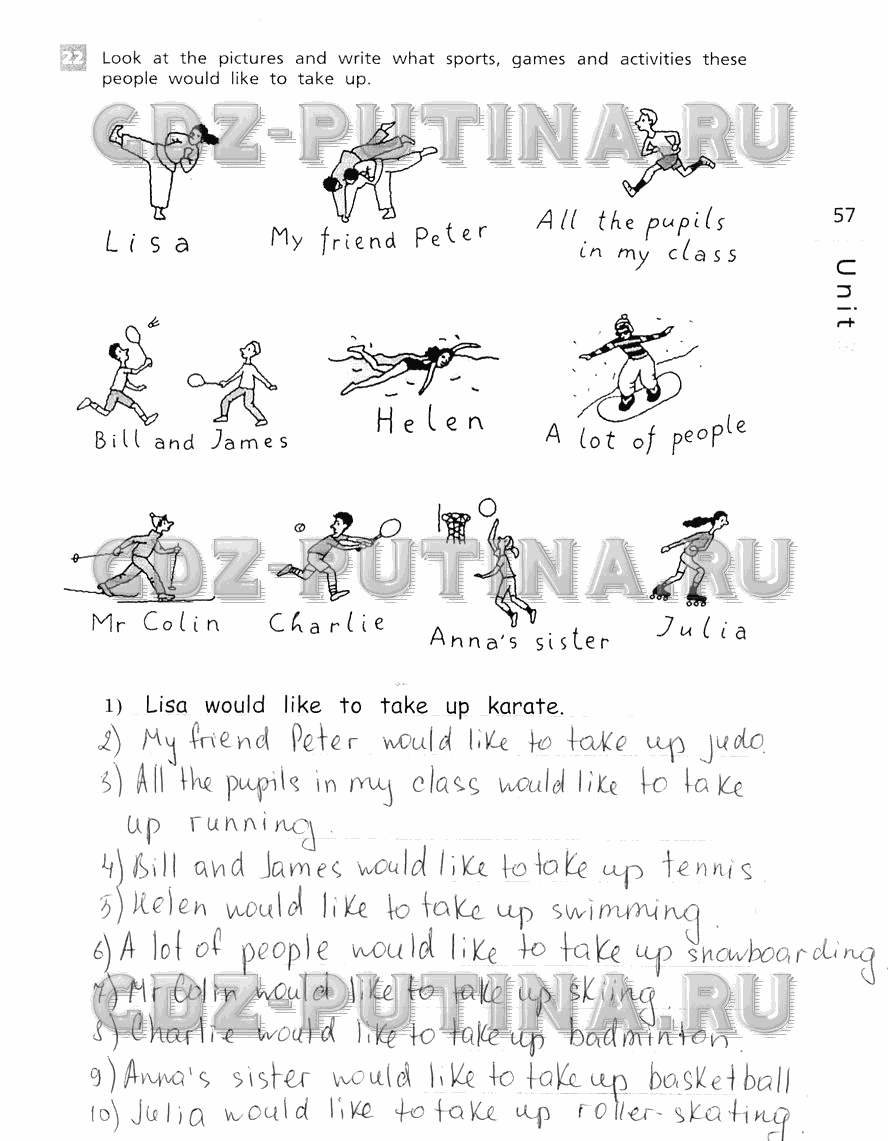 22 Look at the pictures and write what sports, games and activities these
people would like to take up.
GDZ-PUTINA.RU
Lisa
My friend Peter
All the pupils
in my class
57
Unit
Bill and James
Helen
A lot of people
GDZ-PUTINA.RU
Mr Colin
Charlie
Anna's sister
Julia
1) Lisa would like to take up karate.
2) My friend Peter would like to take up judo.
3) All the pupils in my class would like to take
up running.
4) Bill and James would like to take up tennis.
5) Helen would like to take up swimming.
6) A lot of people would like to take up snowboarding.
GDZ-PUTINA.RU
7) Mr Colin would like to take up skiing.
8) Charlie would like to take up badminton.
9) Anna's sister would like to take up basketball
10) Julia would like to take up roller-skating.